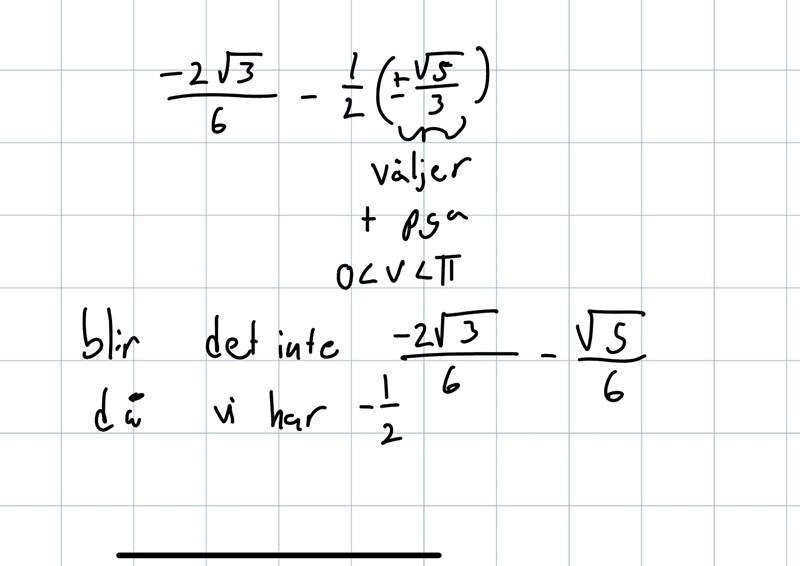 -2√3/6 - 1/2 (±√5/3)
väljer
+ pga
0<v<π
blir det inte -2√3/6 - √5/6
då vi har -1/2